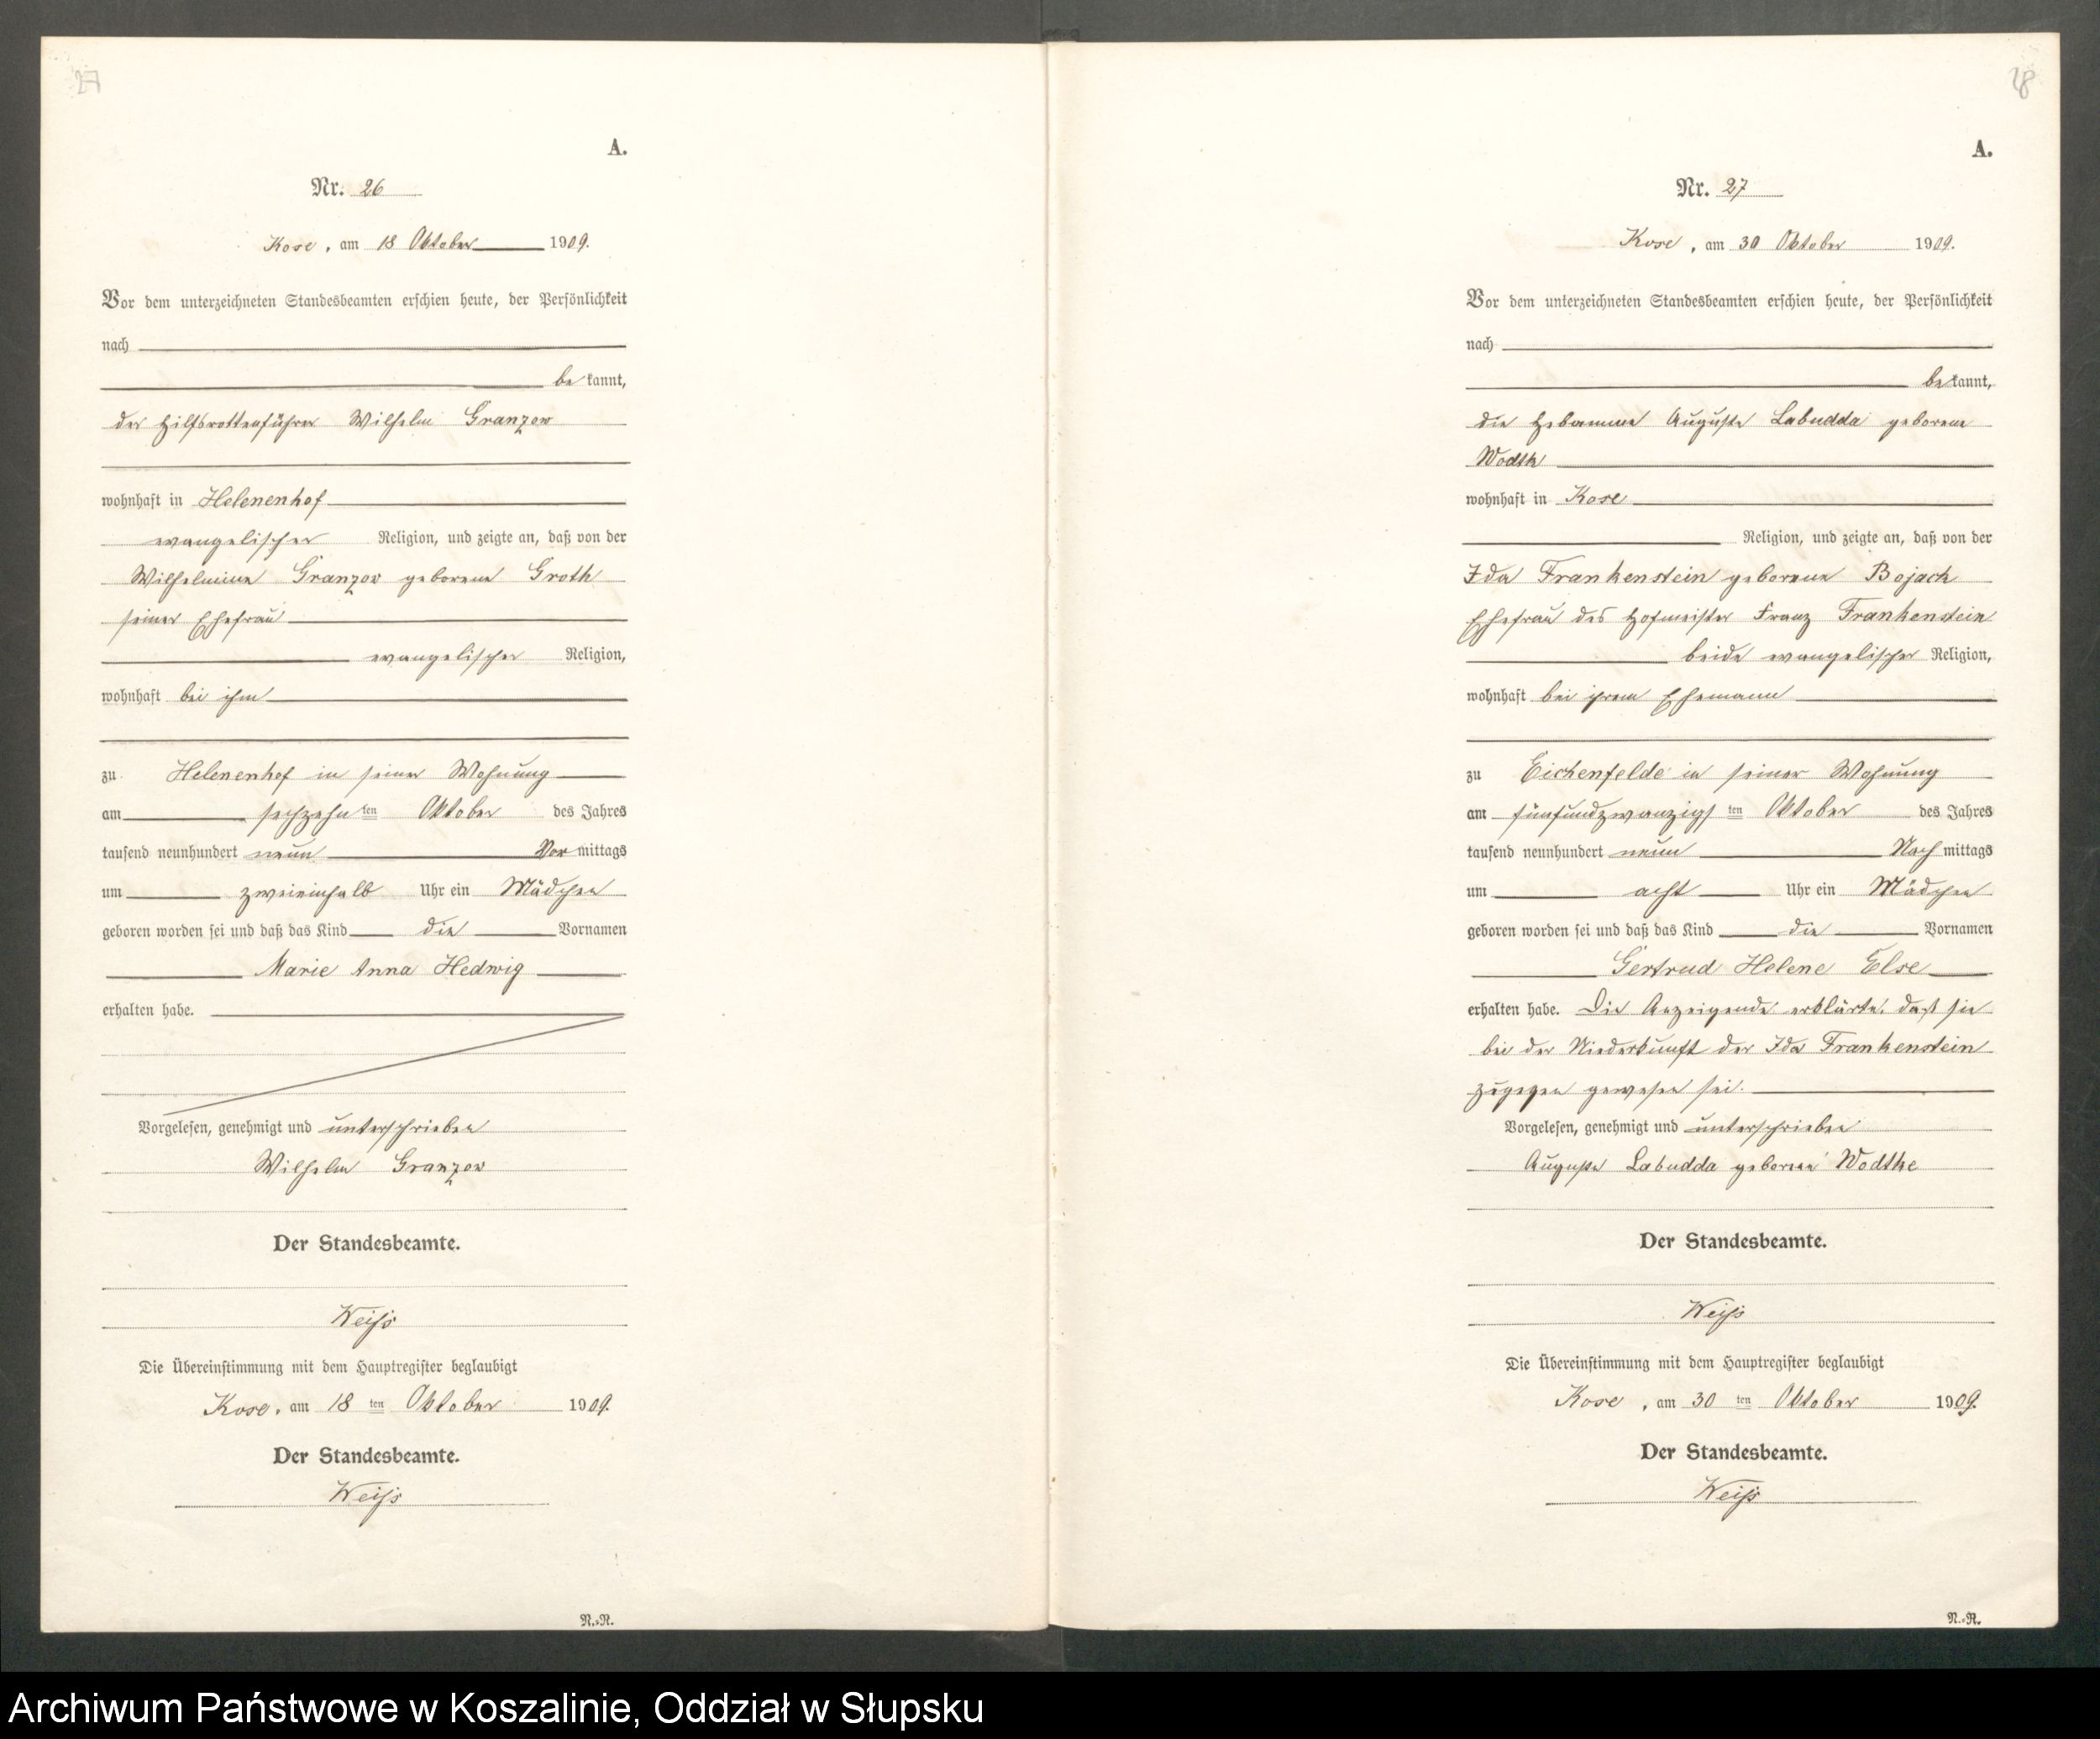 27
A.
Nr. 26
Kose, am 18 Oktober 1909.
Vor dem unterzeichneten Standesbeamten erschien heute, der Persönlichkeit
nach
bekannt,
der Hilfsrottenführer Wilhelm Granzow
wohnhaft in Helenenhof
evangelischer Religion, und zeigte an, daß von der
Wilhelmine Granzow geborene Groth
seiner Ehefrau
evangelischer Religion,
wohnhaft bei ihm
zu Helenenhof in seiner Wohnung
am sechzehnten Oktober des Jahres
tausend neunhundert neun Vormittags
um zweieinhalb Uhr ein Mädchen
geboren worden sei und daß das Kind die Vornamen
Marie Anna Hedwig
erhalten habe.
Vorgelesen, genehmigt und unterschrieben
Wilhelm Granzow
Der Standesbeamte.
Weiß
Die Übereinstimmung mit dem Hauptregister beglaubigt
Kose, am 18ten Oktober 1909.
Der Standesbeamte.
Weiß
N.-R.
28
A.
Nr. 27
Kose, am 30 Oktober 1909.
Vor dem unterzeichneten Standesbeamten erschien heute, der Persönlichkeit
nach
bekannt,
die Hebamme Auguste Labudda geborene
Wodtk
wohnhaft in Kose
Religion, und zeigte an, daß von der
Ida Frankenstein geborene Bojack
Ehefrau des Hofmeister Franz Frankenstein
beide evangelischer Religion,
wohnhaft bei ihrem Ehemann
zu Eichenfelde in seiner Wohnung
am fünfundzwanzigsten Oktober des Jahres
tausend neunhundert neun Nachmittags
um acht Uhr ein Mädchen
geboren worden sei und daß das Kind die Vornamen
Gertrud Helene Else
erhalten habe. Die Anzeigende erklärte, daß sie
bei der Niederkunft der Ida Frankenstein
zugegen gewesen sei.
Vorgelesen, genehmigt und unterschrieben
Auguste Labudda geborene Wodtke
Der Standesbeamte.
Weiß
Die Übereinstimmung mit dem Hauptregister beglaubigt
Kose, am 30ten Oktober 1909.
Der Standesbeamte.
Weiß
N.-R.
Archiwum Państwowe w Koszalinie, Oddział w Słupsku